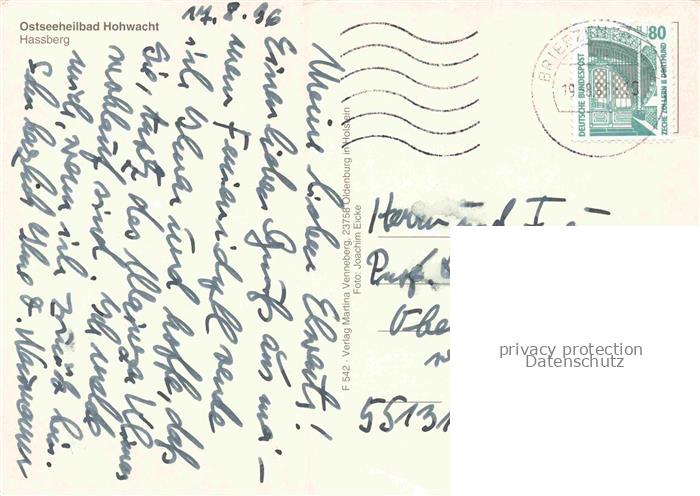 Ostseeheilbad Hohwacht
Hassberg
17.8.96
Meine lieben Elwerts!
Einen lieben Gruß aus mei-
nem Ferienidyll sende
ich Ihnen und hoffe, daß
Sie, trotz des Mainzer Klimas
wohlauf sind. Ich melde
mich, wenn ich zurück bin.
Sehr herzlich Ihre
F 542 · Verlag Martina Venneberg, 23758 Oldenburg in Holstein
Foto: Joachim Eicke
BRIEFZ
19
80
DEUTSCHE BUNDESPOST
ZECHE ZOLLERN II DORTMUND
Herrn und Frau
Prof.
Obe
55131
privacy protection
Datenschutz